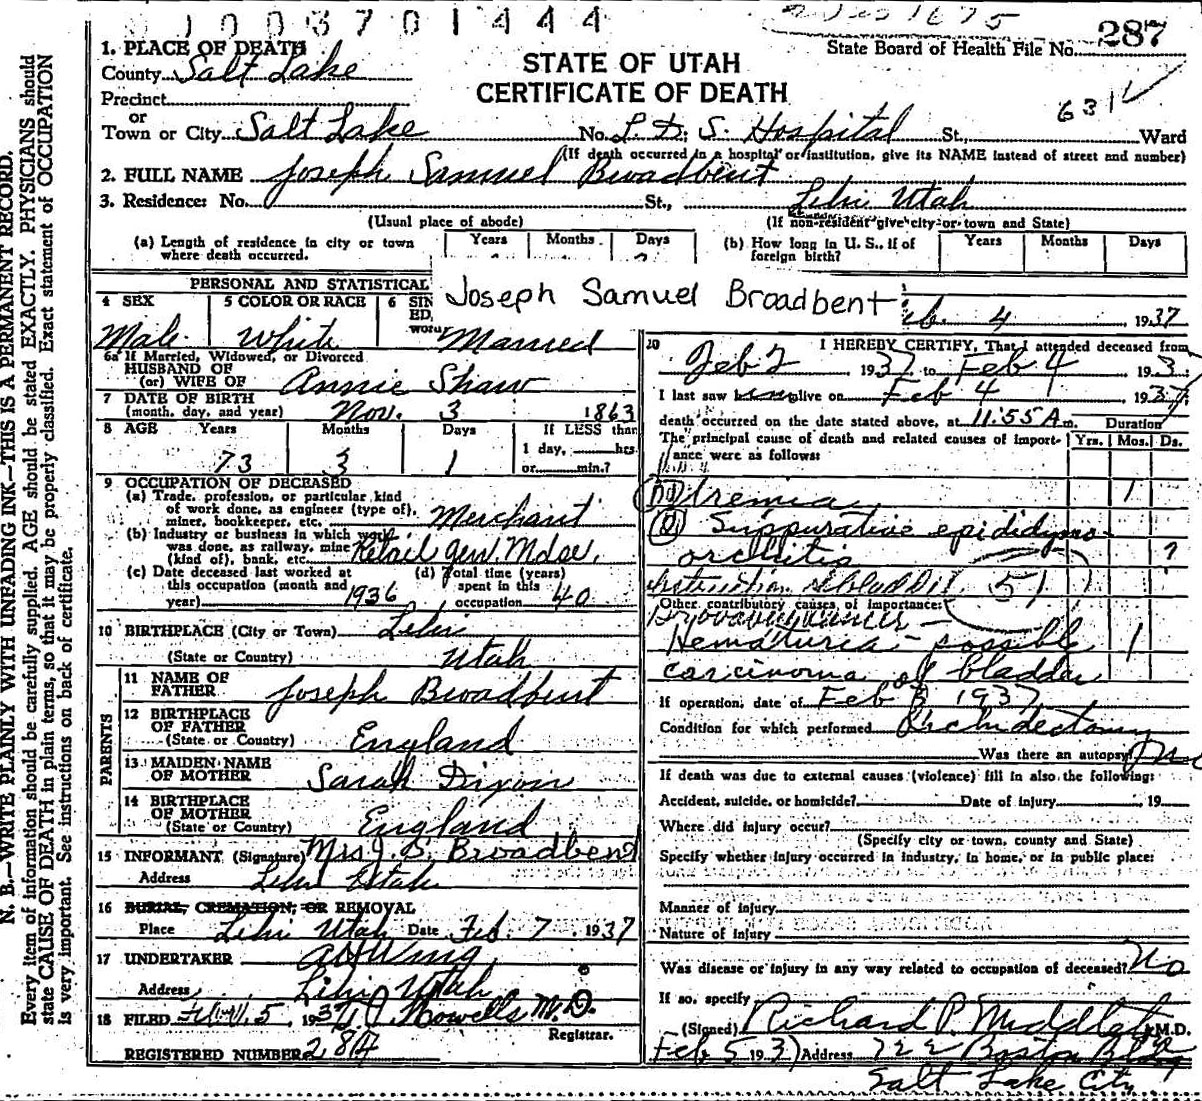 1003701444
State Board of Health File No. 287
STATE OF UTAH
CERTIFICATE OF DEATH
631
1. PLACE OF DEATH
County Salt Lake
Precinct
or
Town or City Salt Lake No. L. D. S. Hospital St., Ward
(If death occurred in a hospital or institution, give its NAME instead of street and number)
2. FULL NAME Joseph Samuel Broadbent
3. Residence: No. St., Lehi Utah
(Usual place of abode) (If non-resident give city or town and State)
(a) Length of residence in city or town where death occurred. Years Months Days
(b) How long in U. S., if of foreign birth? Years Months Days
PERSONAL AND STATISTICAL
Joseph Samuel Broadbent
4 SEX Male
5 COLOR OR RACE White
6 SIN
ED,
Married
6a If Married, Widowed, or Divorced
HUSBAND OF
(or) WIFE OF Annie Shaw
7 DATE OF BIRTH
(month, day, and year) Nov. 3 1863
8 AGE Years Months Days If LESS than
1 day, hrs
or min.?
73 3 1
9 OCCUPATION OF DECEASED
(a) Trade, profession, or particular kind
of work done, as engineer (type of),
miner, bookkeeper, etc. Merchant
(b) Industry or business in which work
was done, as railway, mine
(kind of), bank, etc. Retail Gen. Mdse.
(c) Date deceased last worked at
this occupation (month and
year) 1936
(d) Total time (years)
spent in this
occupation 40
10 BIRTHPLACE (City or Town) Lehi
(State or Country) Utah
PARENTS
11 NAME OF
FATHER Joseph Broadbent
12 BIRTHPLACE
OF FATHER
(State or Country) England
13 MAIDEN NAME
OF MOTHER Sarah Dixon
14 BIRTHPLACE
OF MOTHER
(State or Country) England
15 INFORMANT (Signature) Mrs J. S. Broadbent
Address Lehi Utah
16 BURIAL, CREMATION, OR REMOVAL
Place Lehi Utah Date Feb. 7 1937
17 UNDERTAKER
Address Lehi Utah
18 FILED 5, 1937 M.D.
Registrar.
REGISTERED NUMBER 284
eb. 4 1937
20 I HEREBY CERTIFY, That I attended deceased from
Feb 2 1937 to Feb 4 193
I last saw him alive on Feb 4 1937
death occurred on the date stated above, at 11:55 A m. Duration
The principal cause of death and related causes of import-
ance were as follows: Yrs. Mos. Ds.
Uremia 1
Suppurative epididymo-
orchitis ?
51
Other contributory causes of importance:
Hematuria - possible 1
carcinoma of bladder
If operation, date of Feb 3 1937
Condition for which performed Orchidectomy
Was there an autopsy? no
If death was due to external causes (violence) fill in also the following:
Accident, suicide, or homicide? Date of injury , 19
Where did injury occur?
(Specify city or town, county and State)
Specify whether injury occurred in industry, in home, or in public place:
Manner of injury
Nature of injury
Was disease or injury in any way related to occupation of deceased? No
If so, specify
(Signed) Richard P. Middleton M.D.
Feb 5 1937 Address 722 Boston Bldg
Salt Lake City
N. B.—WRITE PLAINLY WITH UNFADING INK—THIS IS A PERMANENT RECORD.
Every item of information should be carefully supplied. AGE should be stated EXACTLY. PHYSICIANS should
state CAUSE OF DEATH in plain terms, so that it may be properly classified. Exact statement of OCCUPATION
is very important. See instructions on back of certificate.